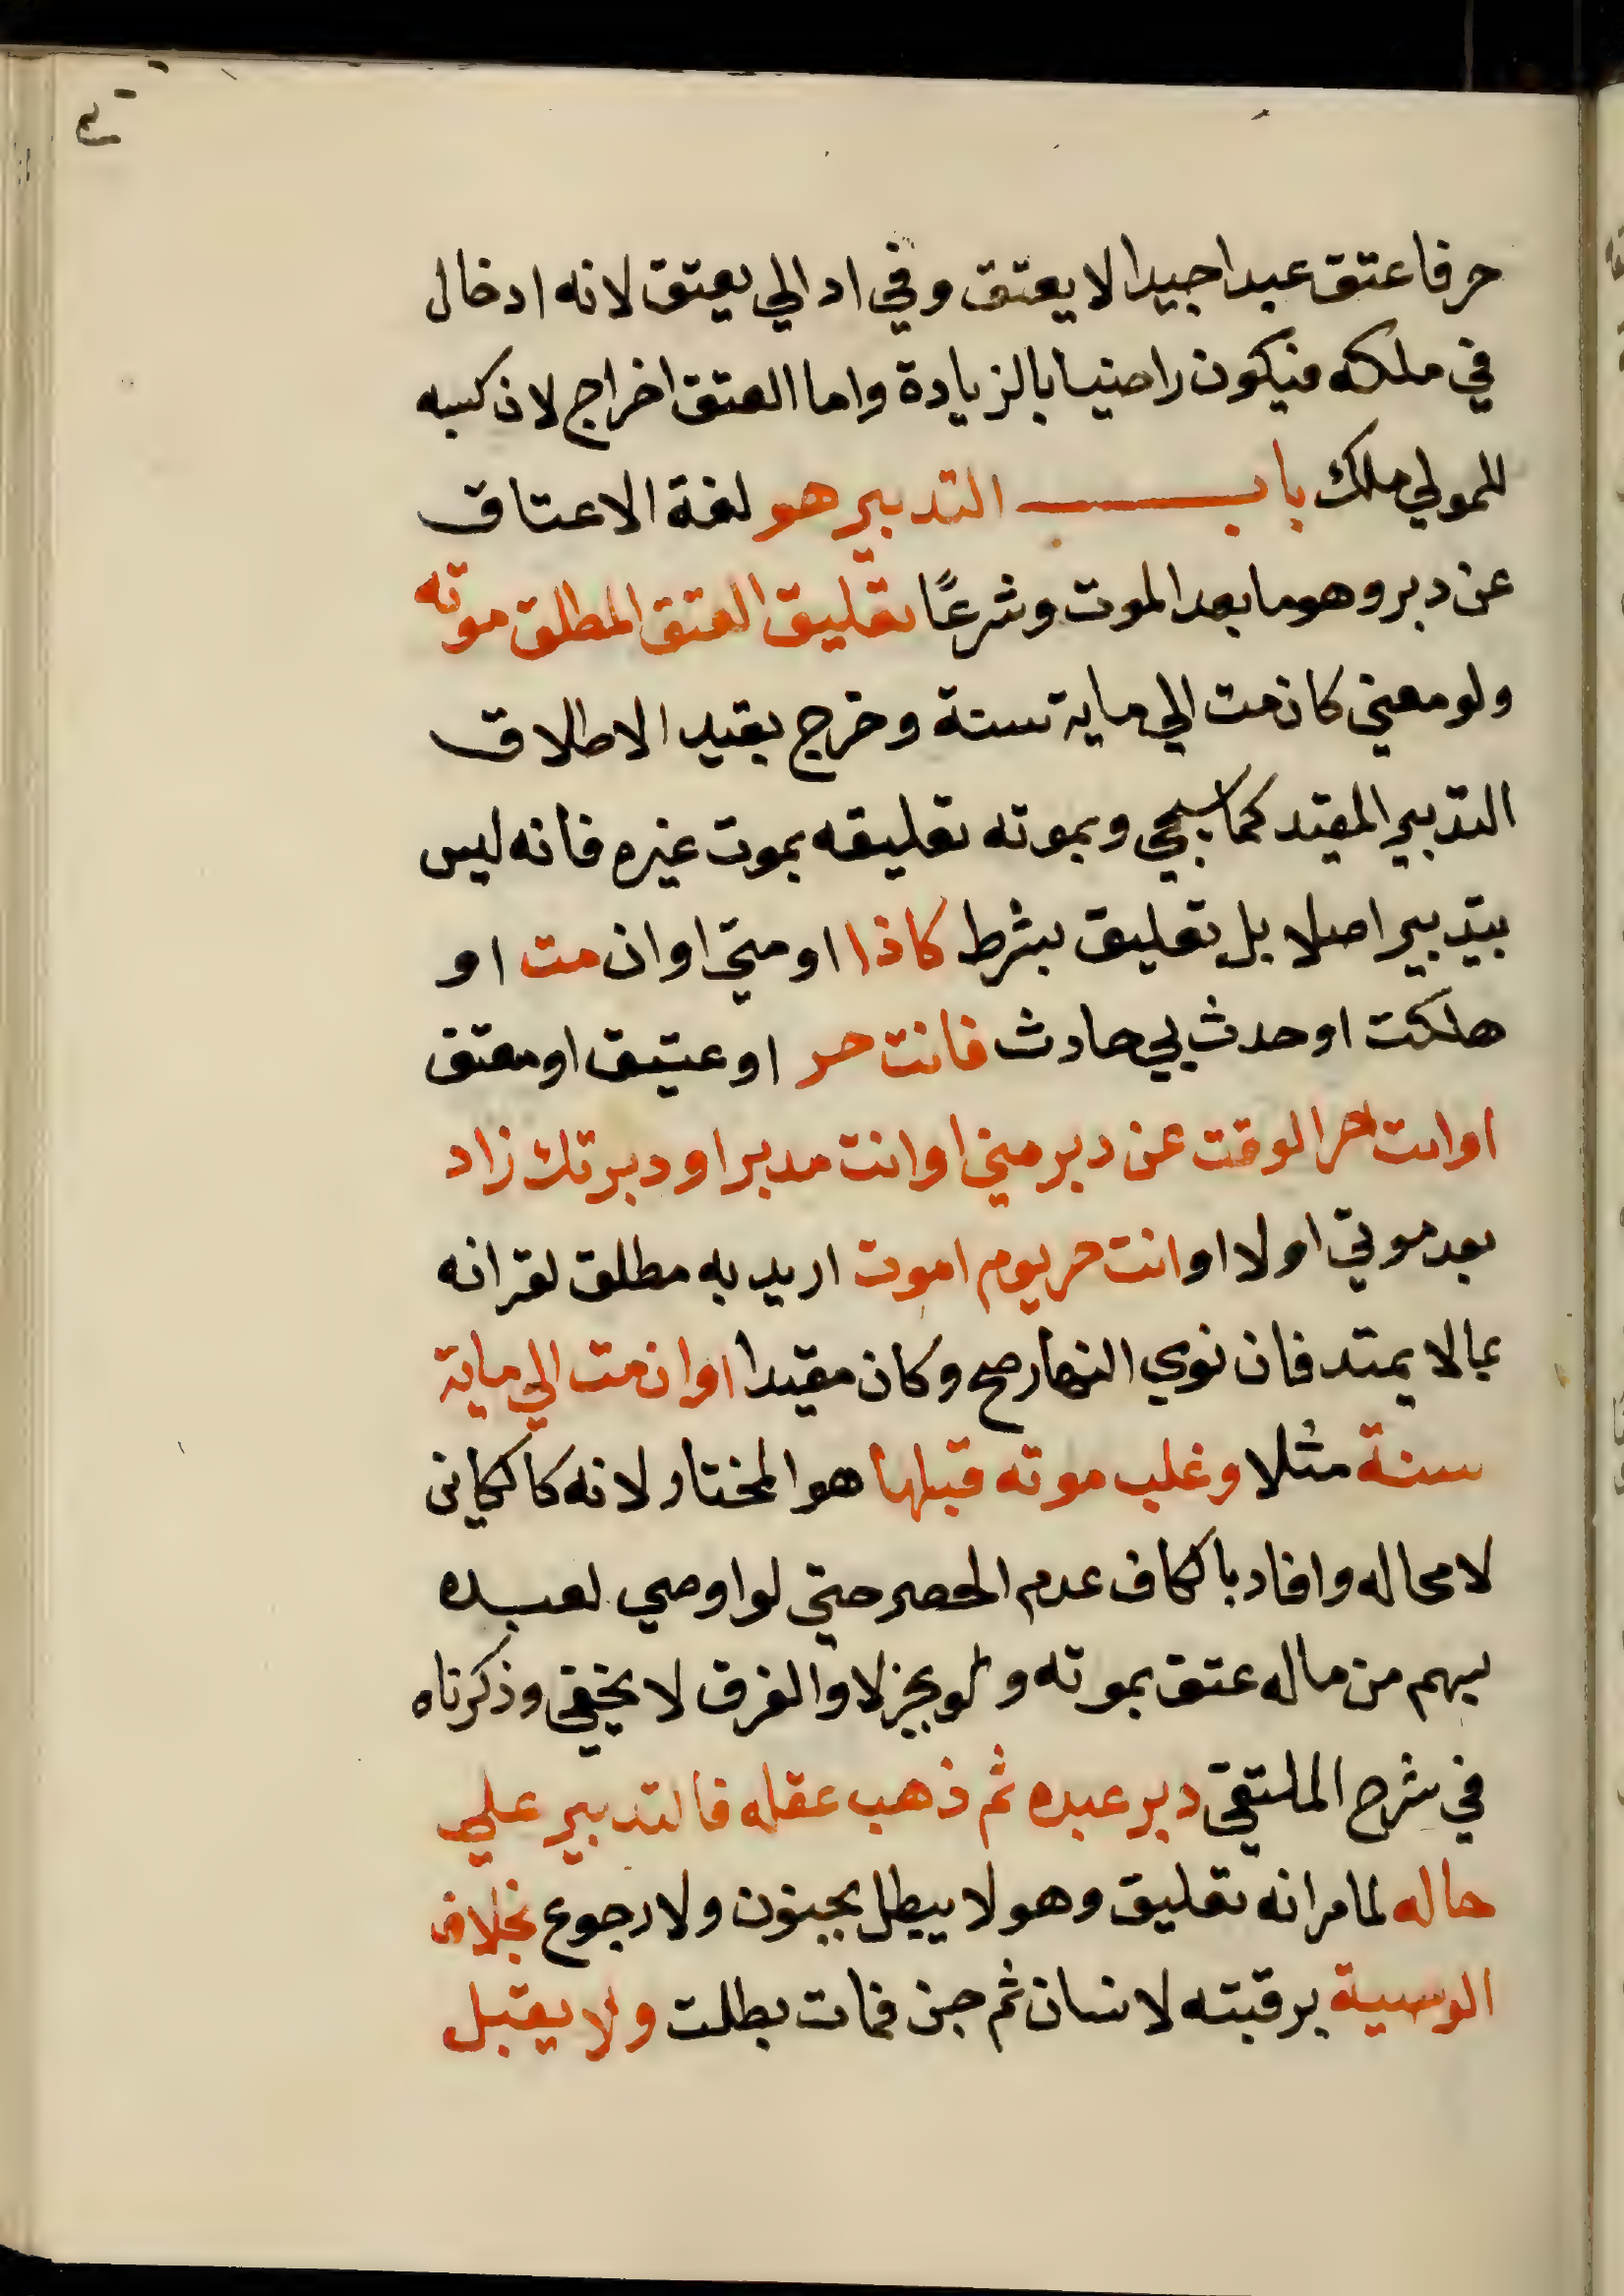 حر فاعتق عبدا جيدا لا يعتق وفي اد الي يعتق لانه ادخال
في ملكه فيكون راضيا بالزيادة واما العتق اخراج لان كسبه
للمولي ملك باب التدبير هو لغة الاعتاق
عن دبر وهو ما بعد الموت وشرعًا تعليق العتق المطلق موته
ولو معني كان مت الي ماية سنة وخرج بقيد الاطلاق
التدبير المقيد كما سيجي وبموته تعليقه بموت غيره فانه ليس
بتدبير اصلا بل تعليق بشرط كاذا او متي او ان مت او
هلكت او حدث بي حادث فانت حر او عتيق او معتق
او انت حر الوقت عن دبر مني او انت مدبر او دبرتك زاد
بعد موتي او لا او انت حر يوم اموت اريد به مطلق لقرانه
بما لا يمتد فان نوي النهار صح وكان مقيدا او ان مت الي ماية
سنة مثلا وغلب موته قبلها هو المختار لانه كالكاين
لا محاله وافاد بالكاف عدم الحصر حتي لو اوصي لعبده
بسهم من ماله عتق بموته ولو بجزلا والفرق لا يخفي وذكرناه
في شرح الملتقي دبر عبده ثم ذهب عقله فالتدبير علي
حاله لما مر انه تعليق وهو لا يبطل بجنون ولا رجوع بخلاف
الوسية برقبته لانسان ثم جن فمات بطلت ولا يقبل